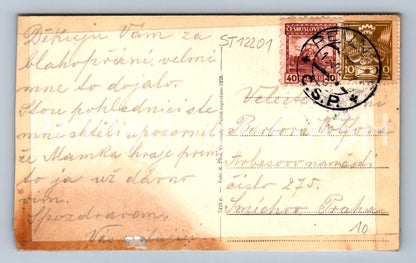 Děkuji Vám za
blahopřání, velmi
mne to dojalo.
Stou pohlednicí ste
mně chtěli upozornit
že Mamka hraje prim
to ja už dávno
vím.
Spozdravem
ST12201
ČESKOSLOVENSKO
40 40
10
Č.S.P.
Velevážená
Barbora
Arbesovo náměstí
číslo 275.
Smíchov Praha
10